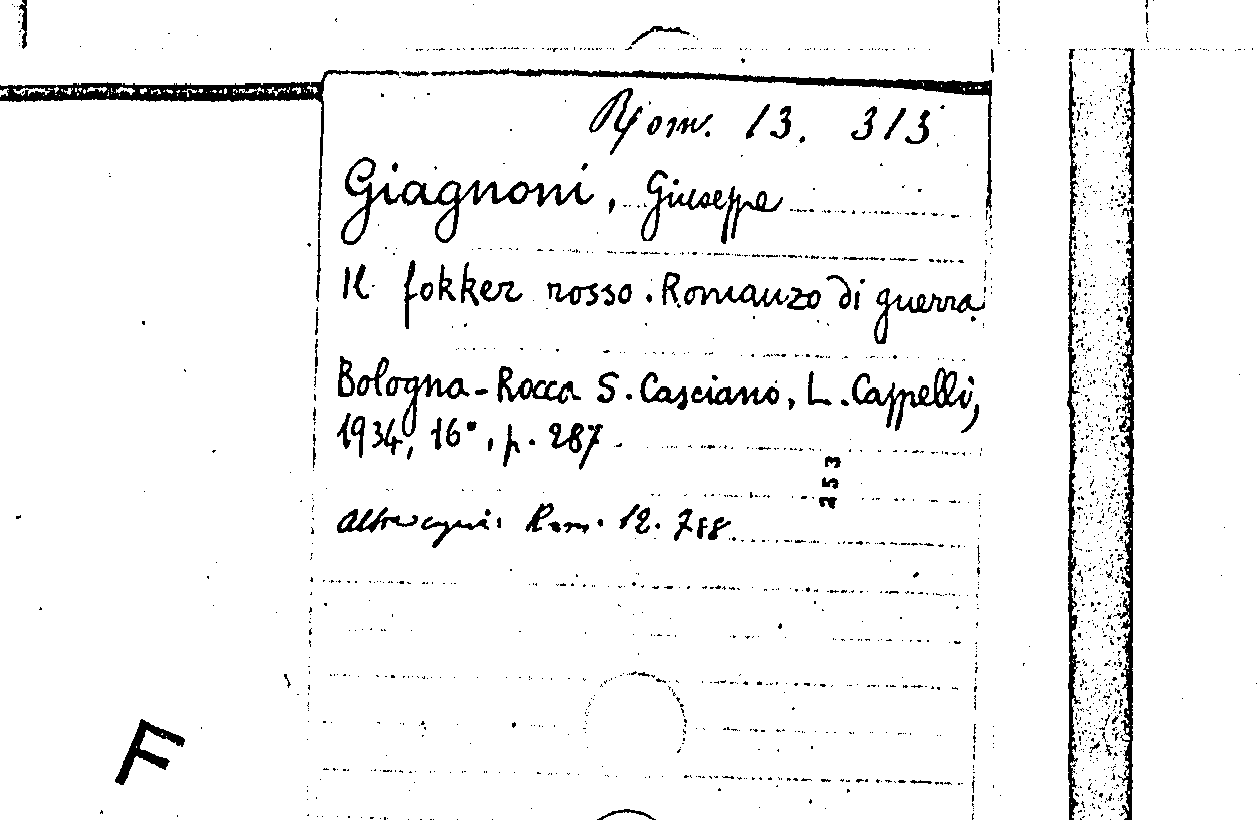 Rom. 13. 313
Giagnoni, Giuseppe
Il fokker rosso. Romanzo di guerra
Bologna-Rocca S. Casciano, L. Cappelli,
1934, 16°, p. 287
253
Rom. 12. 788
F